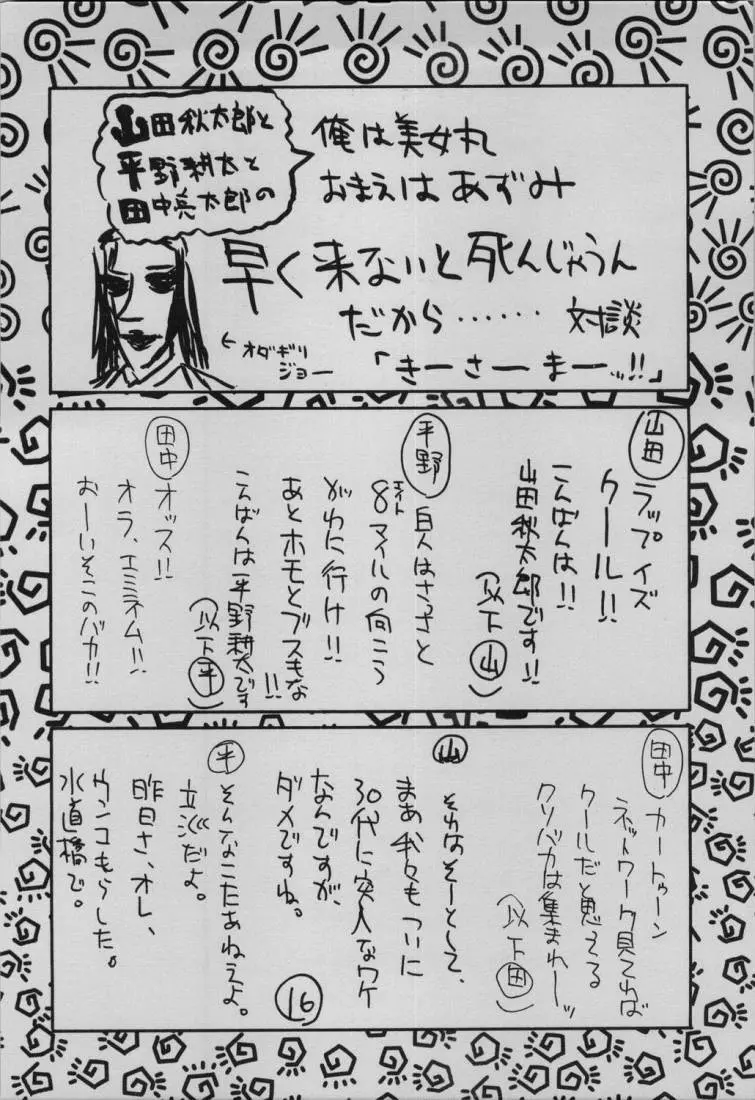 山田秋太郎と
平野耕太と
田中亮太郎の
俺は美女丸
おまえはあずみ
早く来ないと死んじゃうん
だから…… 対談
「きーさーまーッ!!」
←オダギリ
ジョー
山田
ラップイズ
クール!!
こんばんは!!
山田秋太郎です!!
(以下山)
平野
白人はさっさと
8マイルの向こう
エイト
がわに行け!!
あとホモとブスもな!!
こんばんは平野耕太です
(以下平)
田中
オッス!!
オラ、エミネム!!
おーいそこのバカ!!
田中
カートゥーン
ネットワーク見てれば
クールだと思ってる
クソバカは集まれーッ
(以下田)
山
それはそーとして、
まあ我々もついに
30代に突入なワケ
なんですが、
ダメですね。
平
そんなこたあねえよ。
立派だよ。
昨日さ、オレ、
ウンコもらした。
水道橋で。
16